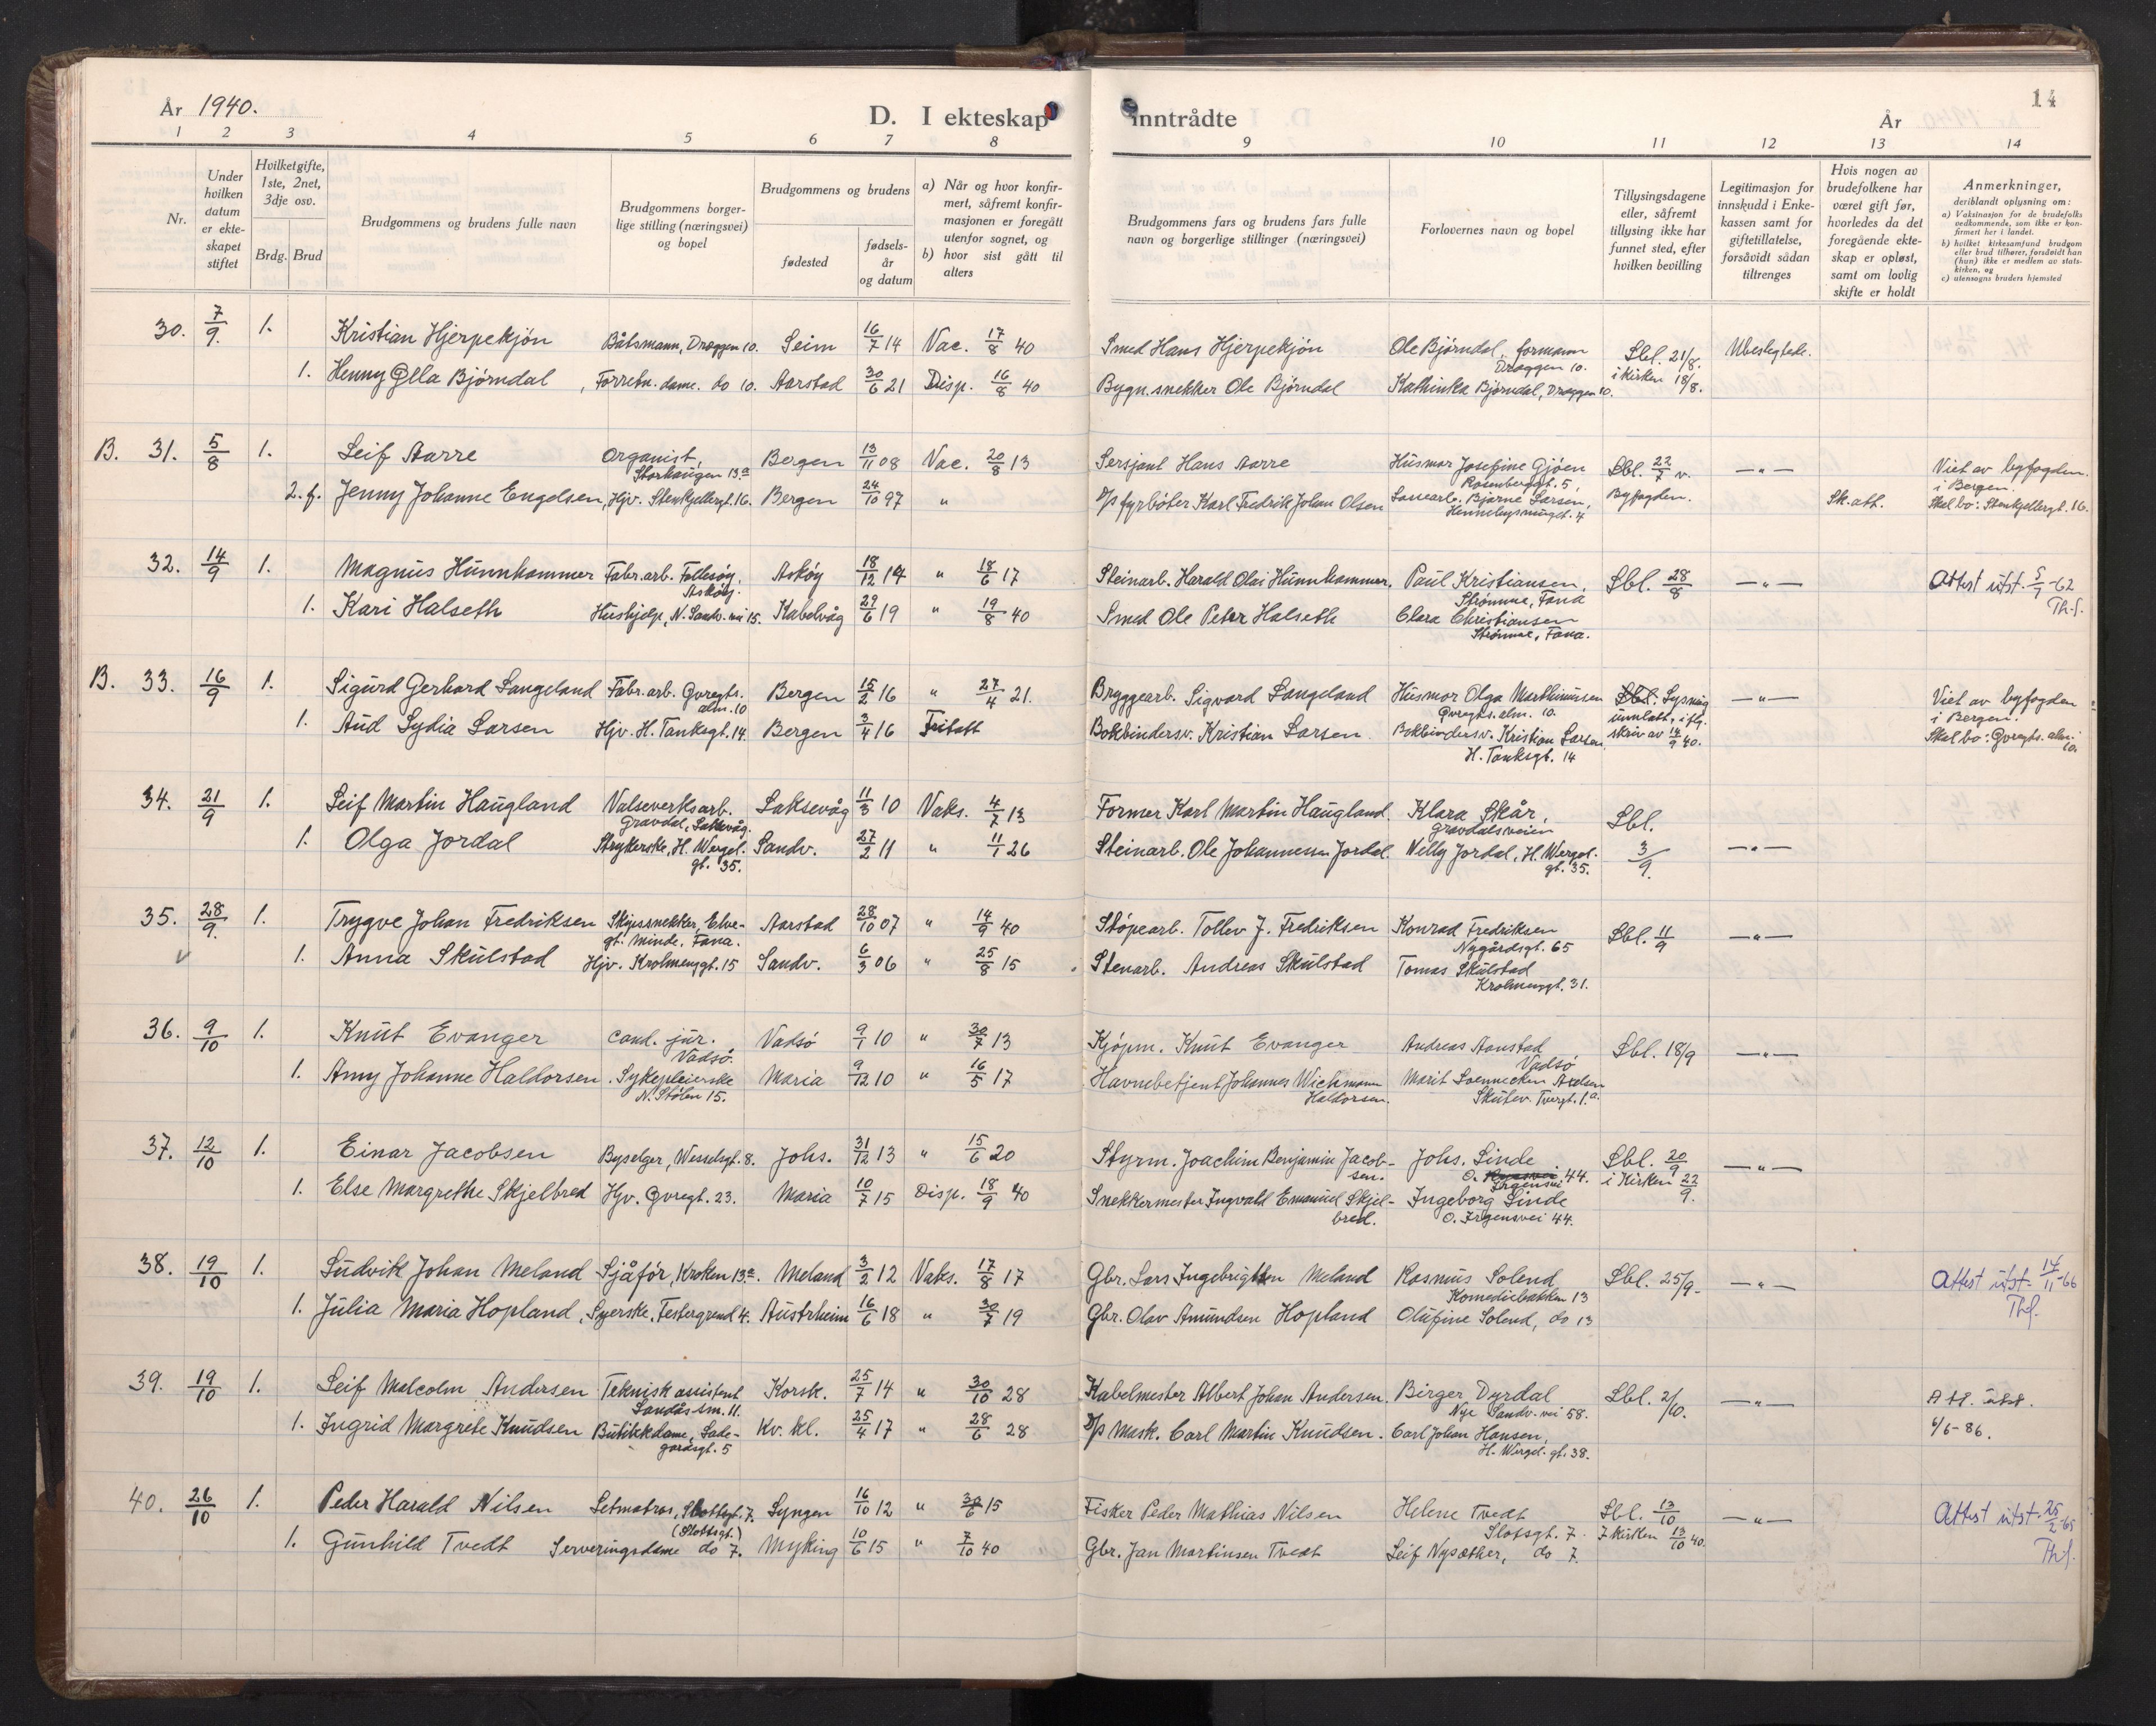 År 1940.
D. I ekteskap inntrådte
År
14
1 2 3 4 5 6 7 8 9 10 11 12 13 14
Nr.
Under hvilken datum er ekteskapet stiftet
Hvilket gifte, 1ste, 2net, 3dje osv.
Brdg. Brud
Brudgommens og brudens fulle navn
Brudgommens borgerlige stilling (næringsvei) og bopel
Brudgommens og brudens
fødested
fødselsår og datum
a) Når og hvor konfirmert, såfremt konfirmasjonen er foregått utenfor sognet, og
b) hvor sist gått til alters
Brudgommens fars og brudens fars fulle navn og borgerlige stillinger (næringsvei)
Forlovernes navn og bopel
Tillysingsdagene eller, såfremt tillysing ikke har funnet sted, efter hvilken bevilling
Legitimasjon for innskudd i Enkekassen samt for giftetillatelse, forsåvidt sådan tiltrenges
Hvis nogen av brudefolkene har været gift før, hvorledes da det foregående ekteskap er opløst, samt om lovlig skifte er holdt
Anmerkninger,
deriblandt oplysning om:
a) Vaksinasjon for de brudefolks vedkommende, som ikke er konfirmert her i landet.
b) hvilket kirkesamfund brudgom eller brud tilhører, forsåvidt han (hun) ikke er medlem av statskirken, og
c) utensogns bruders hjemsted
30. 7/9. 1. Kristian Hjerpekjøn Båtsmann, Dræggen 10. Seim 16/7 14 Vac. 17/8 40 Smed Hans Hjerpekjøn Ole Bjørndal, formann Dræggen 10. Lbl. 21/8. i kirken 18/8. Ubeslegtede.
1. Henny Ella Bjørndal, Forretn. dame. do 10. Aarstad 30/6 21 Disp. 16/8 40 Bygn. snekker Ole Bjørndal Kathinka Bjørndal, Dræggen 10.
B. 31. 5/8 1. Leif Aarre Organist, Storhaugen 13a Bergen 13/11 08 Vac. 20/8 13 Sersjant Hans Aarre Husmor Josefine Gjøen Rosenberggt. 5, Lbl. 22/7 v. Byfogden. —"— Viet av byfogden i Bergen.
2. f. Jenny Johanne Engelsen, Hjv. Stenkjellergt. 16. Bergen 24/10 97 " D/s fyrbøter Karl Fredrik Johan Olsen Lossearb. Bjarne Larsen, 4 Sk. att. Skal bo: Stenkjellergt. 16.
32. 14/9 1. Magnus Hunnhammer Fabr. arb. Follesøy, Askøy. Askøy 18/12 14 " 18/6 17 Steinarb. Harald Olai Hunnhammer. Paul Kristiansen, Strømme, Fana Lbl. 28/8 —"— Attest utst. 5/7 -62 Th.f.
1. Kari Halseth Hushjelp, N. Sandv. vei 15. Kabelvåg 29/6 19 " 19/8 40 Smed Ole Peter Halseth Clara Christiansen Strømme, Fana.
B. 33. 16/9 1. Sigurd Gerhard Langeland Fabr. arb. Øvregts. alm. 10 Bergen 15/2 16 " 27/4 21. Bryggearb. Sigvard Langeland Husmor Olga Marthinusen Øvregts. alm. 10. Lysning unnlatt, iflg. skriv av 14/9 40. —"— Viet av byfogden i Bergen.
1. Aud Lydia Larsen Hjv. H. Tanksgt. 14. Bergen 3/4 16 Fritatt Bokbindersv. Kristian Larsen Bokbindersv. Kristian Larsen H. Tanksgt. 14 Skal bo: Øvregts. alm. 10.
34. 21/9 1. Leif Martin Haugland Valseverksarb. Gravdal, Laksevåg. Laksevåg 11/3 10 Vaks. 4/7 13 Former Karl Martin Haugland. Klara Skår, Gravdalsveien Lbl. 3/9.
1. Olga Jordal Strykerske, H. Wergel. gt. 35. Sandv. 27/2 11 " 11/1 26 Steinarb. Ole Johannessen Jordal. Willy Jordal, H. Wergel. gt. 35. —"—
35. 28/9. 1. Trygve Johan Fredriksen Skipssnekker, Elvegt. Minde. Fana. Aarstad 28/10 07 " 14/9 40 Støpearb. Tollev J. Fredriksen Konrad Fredriksen Nygårdsgt. 65 Lbl. 11/9 —"—
1. Anna Skulstad Hjv. Krohnenggt. 15 Sandv. 6/3 06 " 25/8 15 Stenarb. Andreas Skulstad Tomas Skulstad Krohnenggt. 31.
36. 9/10 1. Knut Evanger cand. jur. Vadsø. Vadsø 9/1 10 " 30/7 13 Kjøpm. Knut Evanger Andreas Aanstad Vadsø Lbl. 18/9 —"—
1. Amy Johanne Haldorsen. Sykepleierske N. Stølen 15. Maria 9/12 10 " 16/5 17 Havnebetjent Johannes Wichmann Haldorsen. Marit Loennecken Axelsen Skutev. Tvergt. 1.a
37. 12/10 1. Einar Jacobsen Byselger, Wesselsgt. 8. Johs. 31/12 13 " 15/6 20 Styrm. Joachim Benjamin Jacobsen. Johs. Linde O. Irgensvei 44. Lbl. 20/9 i kirken 22/9. —"—
1. Else Margrethe Skjelbred Hjv. Øvregt. 23. Maria 10/7 15 Disp. 18/9 40 Snekkermester Ingvald Emanuel Skjelbred. Ingeborg Linde O. Irgensvei 44.
38. 19/10 1. Ludvik Johan Meland Sjåfør, Kroken 13a. Meland 3/2 12 Vaks. 17/8 17 Gbr. Lars Ingebrigtsen Meland Rasmus Solend Komediebakken 13 Lbl. 25/9. —"— Attest utst. 14/11-66 Th.f.
1. Julia Maria Hopland, Syerske, Festergrend 4. Austrheim 16/6 18 " 30/7 19 Gbr. Olav Amundsen Hopland Olufine Solend, do 13
39. 19/10 1. Leif Malcolm Andersen Teknisk assistent Landås sm. 11. Korsk. 25/7 14 " 30/10 28 Kabelmester Albert Johan Andersen. Birger Dyrdal Nye Sandv. vei 58. Lbl. 2/10. —"— Att. utst.
1. Ingrid Margrete Knudsen Butikkdame, Ladegårdsgt. 5 Kv. kl. 25/4 17 " 28/6 28 D/s Mask. Carl Martin Knudsen. Carl Johan Hansen, H. Wergel. gt. 38. 4/6-86.
40. 26/10 1. Peder Harald Nilsen Letmatros, Slottsgt. 7. (Slottsgt.) Lyngen 16/10 12 " 15 Fisker Peder Mathias Nilsen Helene Tvedt Slotsgt. 7. Lbl. 13/10 I kirken 13/10 40. —"— Attest utst. 25/2-65 Th.f.
1. Gunhild Tvedt Serveringsdame do 7. Myking 10/6 15 " 7/10 40 Gbr. Jan Martinsen Tvedt Leif Nysæther, do 7.